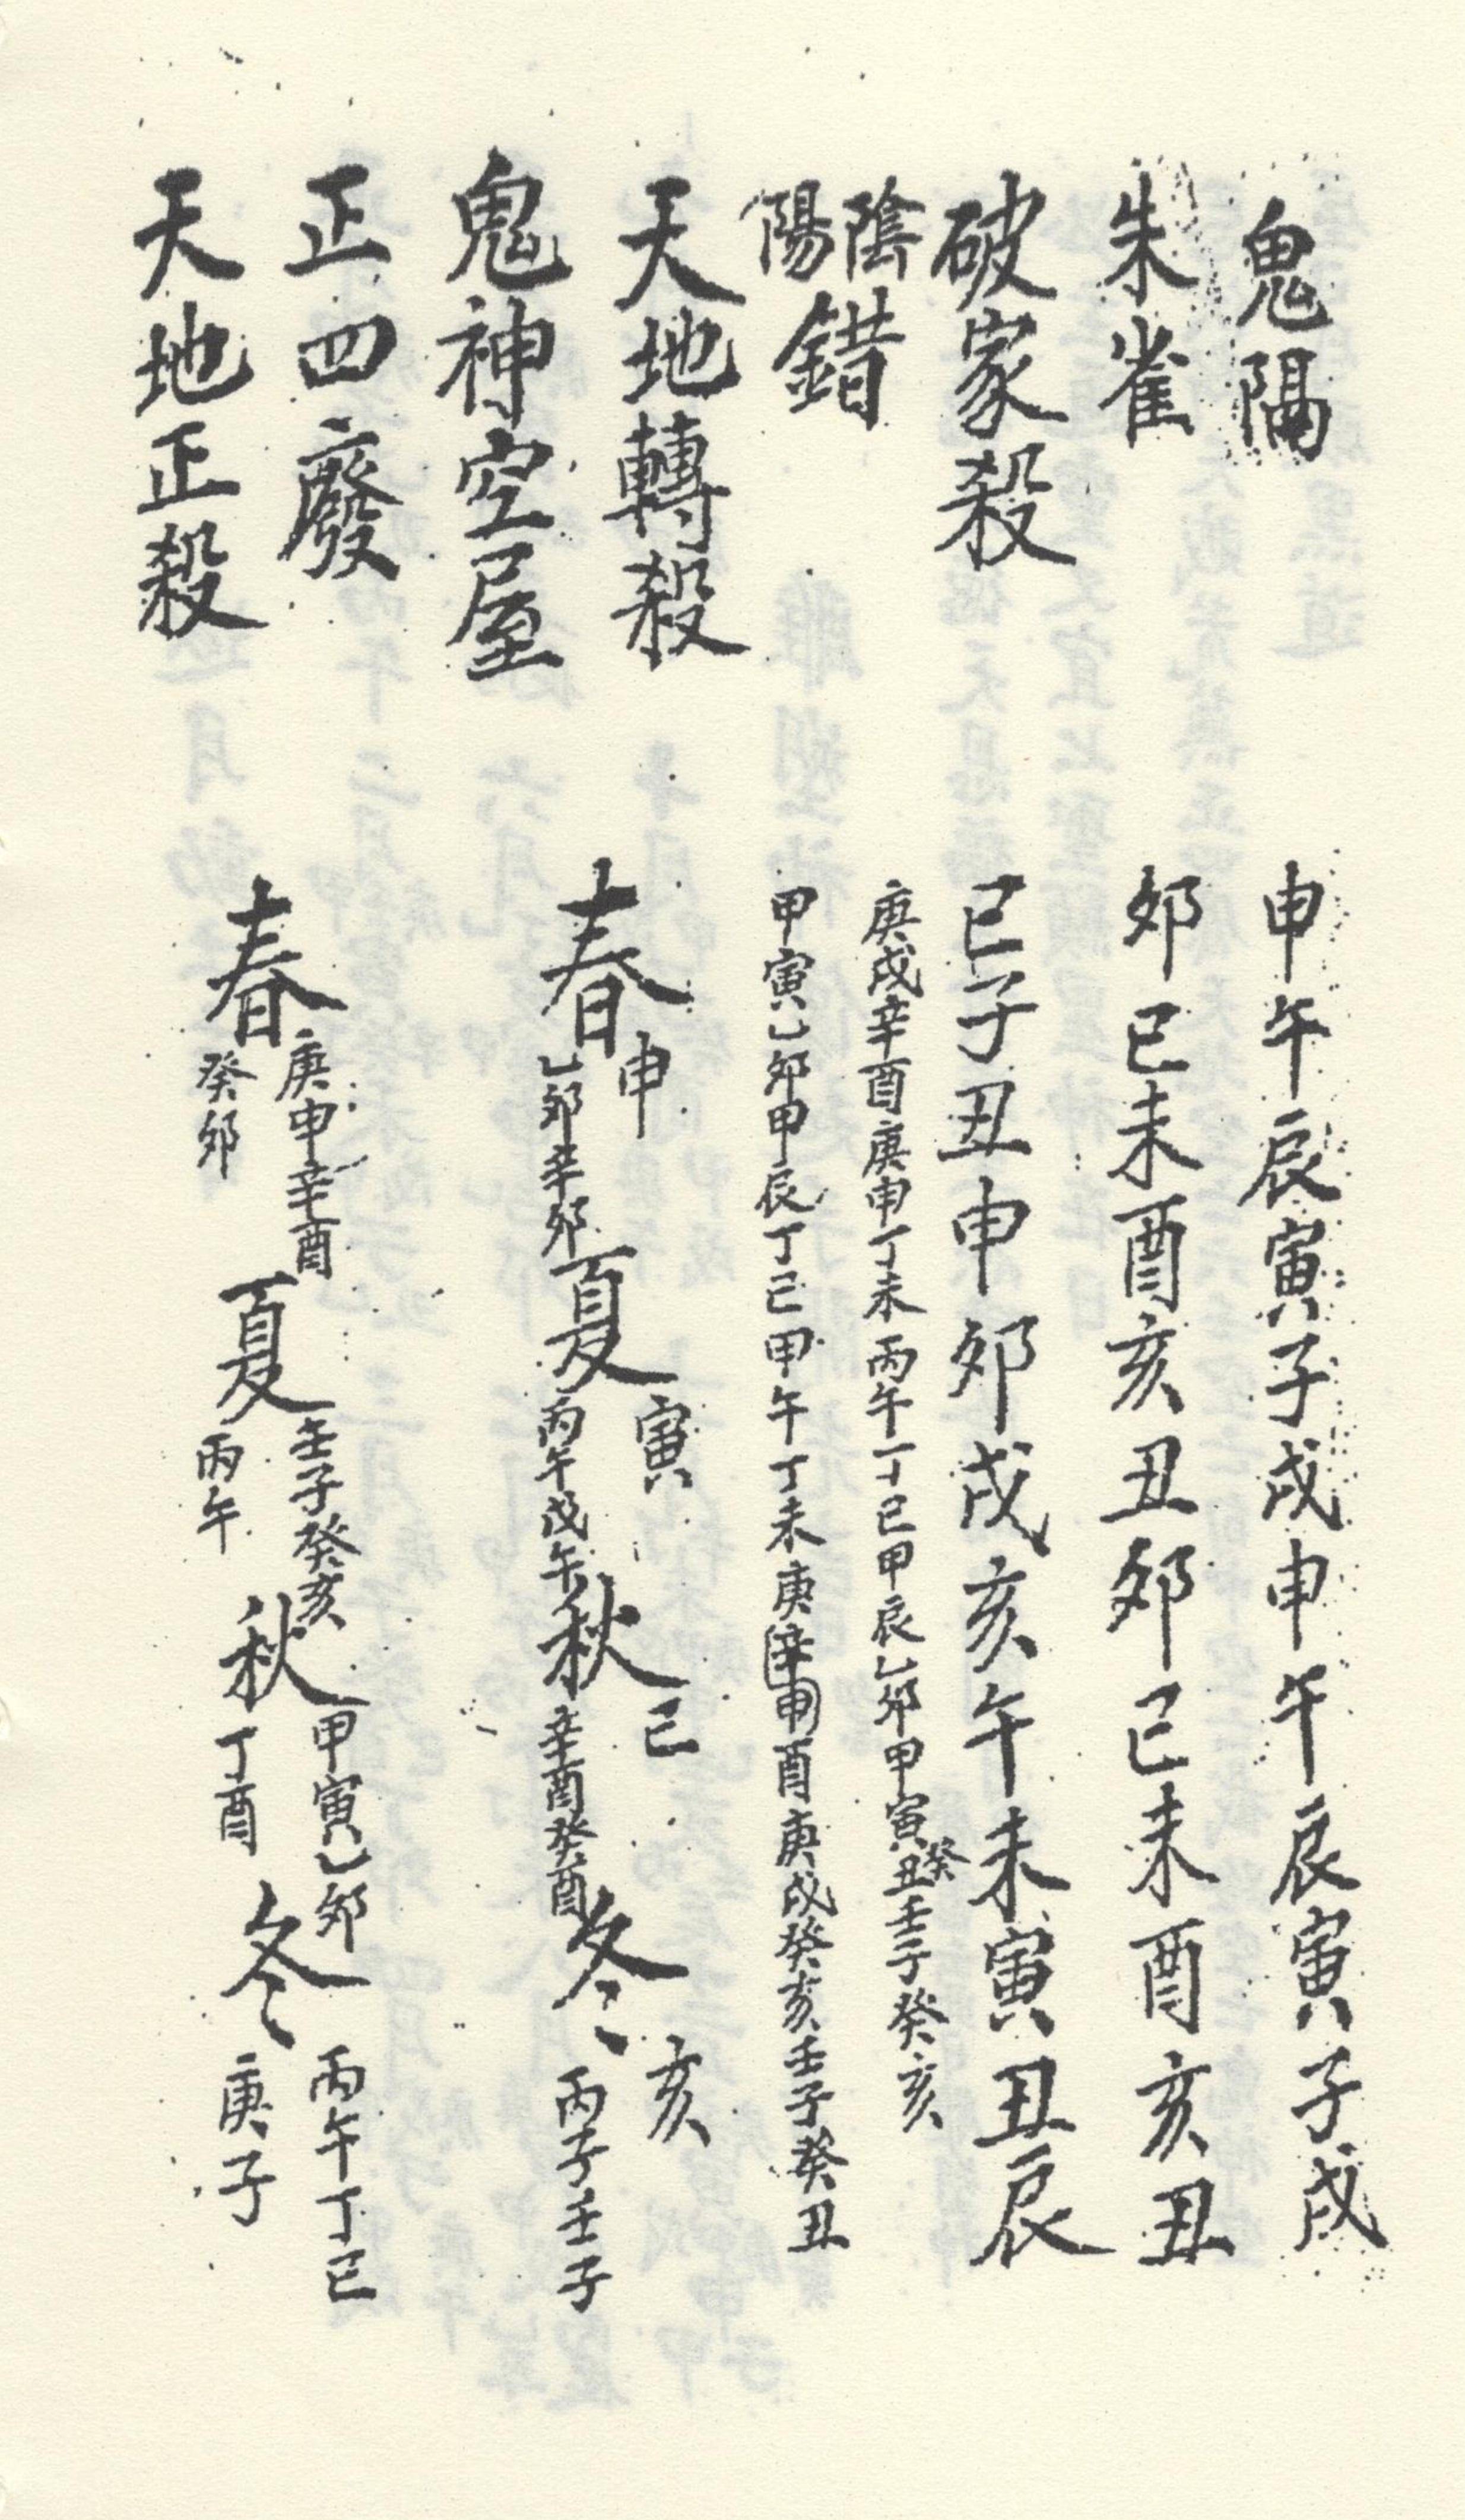 鬼隔 申午辰寅子戌申午辰寅子戌
朱雀 卯巳未酉亥丑卯巳未酉亥丑
破家殺 巳子丑申卯戌亥午未寅丑辰
陰陽錯
庚戌辛酉庚申丁未丙午丁巳甲辰乙卯甲寅癸丑壬子癸亥
甲寅乙卯甲辰丁巳甲午丁未庚辛申酉庚戌癸亥壬子癸丑
天地轉殺
鬼神空屋
春申夏寅秋巳冬亥
乙卯辛卯丙午戊午辛酉癸酉丙子壬子
正四廢
天地正殺
春庚申辛酉夏壬子癸亥秋甲寅乙卯冬丙午丁巳
癸卯丙午丁酉庚子